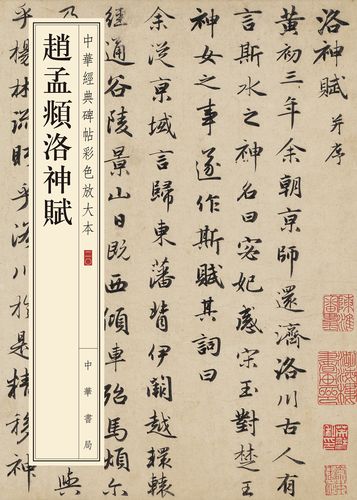 洛神賦 并序
黃初三年余朝京師還濟洛川古人有
言斯水之神名曰宓妃感宋玉對楚王
神女之事遂作斯賦其詞曰
余從京域言歸東藩背伊闕越轘轅
經通谷陵景山日既西傾車殆馬煩尔
與
乎楊林流眄乎洛川於是精移神
中華經典碑帖彩色放大本
二〇
中華書局
趙孟頫洛神賦